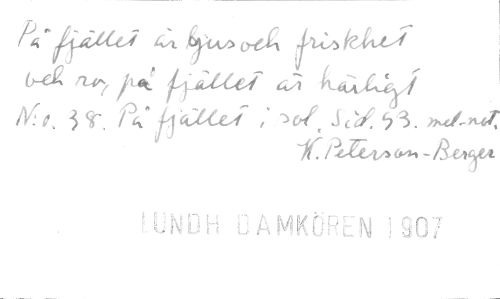 På fjället är ljus och friskhet
och ro, på fjället är härligt
N:o. 38. På fjället i sol. Sid. 53. mel.-not.
W. Peterson-Berger
LUNDH DAMKÖREN 1907